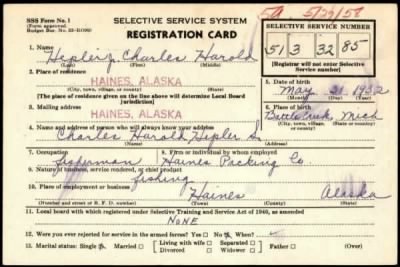 SSS Form No. 1
(Form approved.
Budget Bur. No. 33-R099)
SELECTIVE SERVICE SYSTEM
REGISTRATION CARD
SELECTIVE SERVICE NUMBER
51 3 32 85
[Registrar will not enter Selective
Service number]
1. Name
Hepler, Charles Harold
(Last) (First) (Middle)
2. Place of residence
HAINES, ALASKA
(City, town, village, or county) (State)
[The place of residence given on the line above will determine Local Board
jurisdiction]
5. Date of birth
May 21 1932
3. Mailing address
HAINES, ALASKA
6. Place of birth
Battle Creek, Mich
(City, town, village, or county) (State or country)
4. Name and address of person who will always know your address
Charles Harold Hepler Sr
7. Occupation
fisherman
8. Firm or individual by whom employed
Haines Packing Co.
9. Nature of business, service rendered, or chief product
fishing
10. Place of employment or business
Haines Alaska
(Number and street or R. F. D. number) (City, town, village, or county) (State)
11. Local board with which registered under Selective Training and Service Act of 1940, as amended
NONE
12. Were you ever rejected for service in the armed forces? Yes No When
13. Marital status: Single Married Living with wife Separated Father
Divorced Widower (Over)